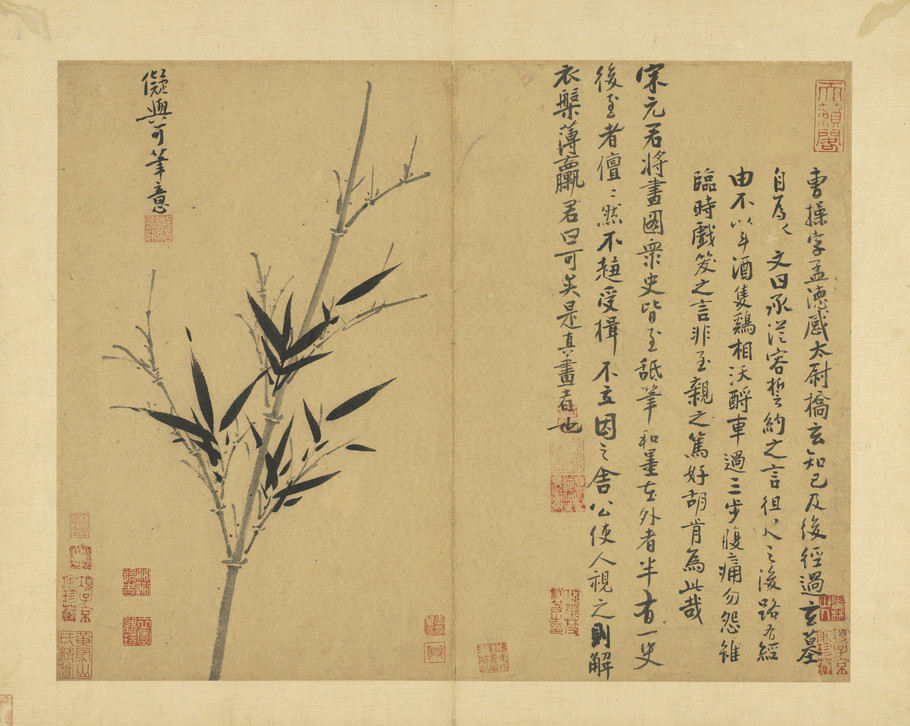 天籟閣
曹操字孟德感太尉橋玄知己及後經過玄墓
自為文曰承從容誓約之言徂之後路有經
由不以斗酒隻鷄相沃酹車過三步腹痛勿怨雖
臨時戲笑之言非至親之篤好胡肯為此哉
宋元君將畫圖衆史皆至舐筆和墨在外者半有一史
後至者儃〻然不趨受揖不立因之舍公使人視之則解
衣槃薄臝君曰可矣是真畫者也
儗與可筆意
項子京家珍藏